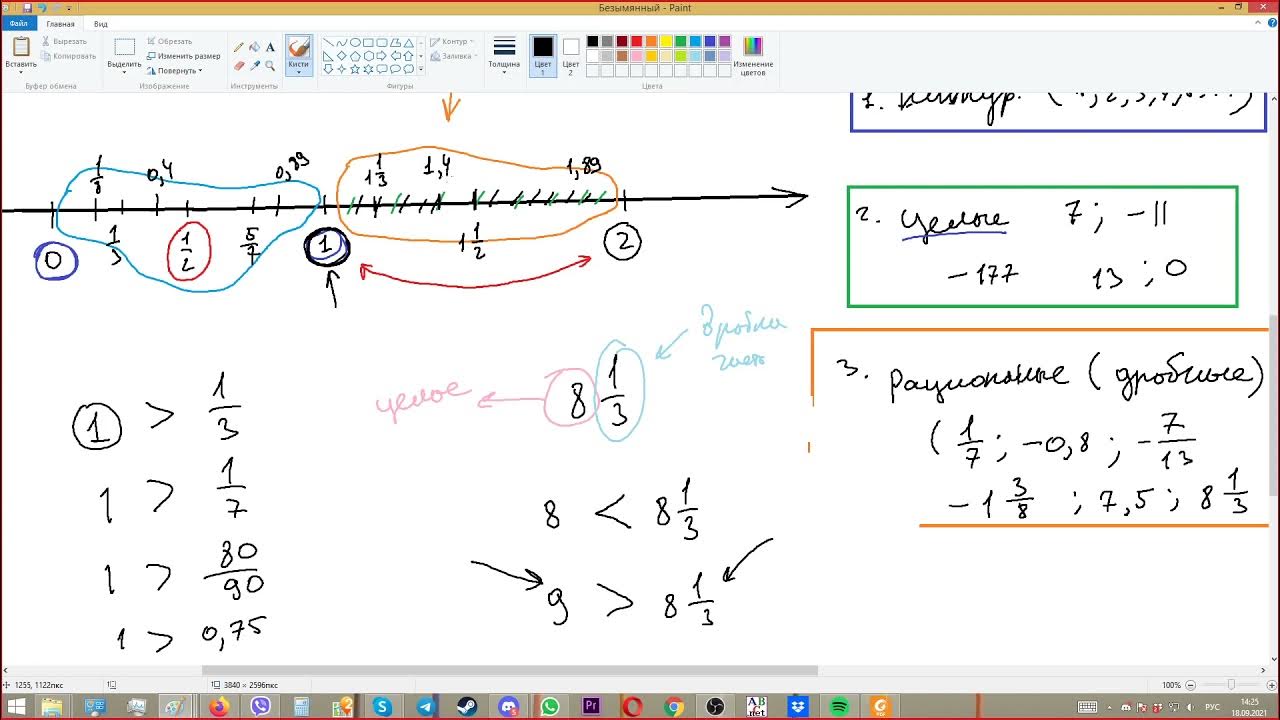 Безымянный - Paint
Файл Главная Вид
Вставить
Вырезать
Копировать
Буфер обмена
Выделить
Обрезать
Изменить размер
Повернуть
Изображение
Инструменты
Кисти
Контур
Заливка
Фигуры
Толщина
Цвет 1
Цвет 2
Изменение цветов
Цвета
1/8 0,4 0,89 1 1/3 1,4 1,89
1/3 1/2 5/7 1 1/2
0 1 2
1 > 1/3
1 > 1/7
1 > 80/90
1 > 0,75
целое
8 1/3
8 < 8 1/3
9 > 8 1/3
1. Натур. (1, 2, 3, 4,
2. Целые 7; -11
-177 13; 0
3. Рациональные (дробные)
(1/7; -0,8; -7/13
-1 3/8; 7,5; 8 1/3
1255, 1122пкс
3840 × 2596пкс
100%
РУС
14:25
18.09.2021